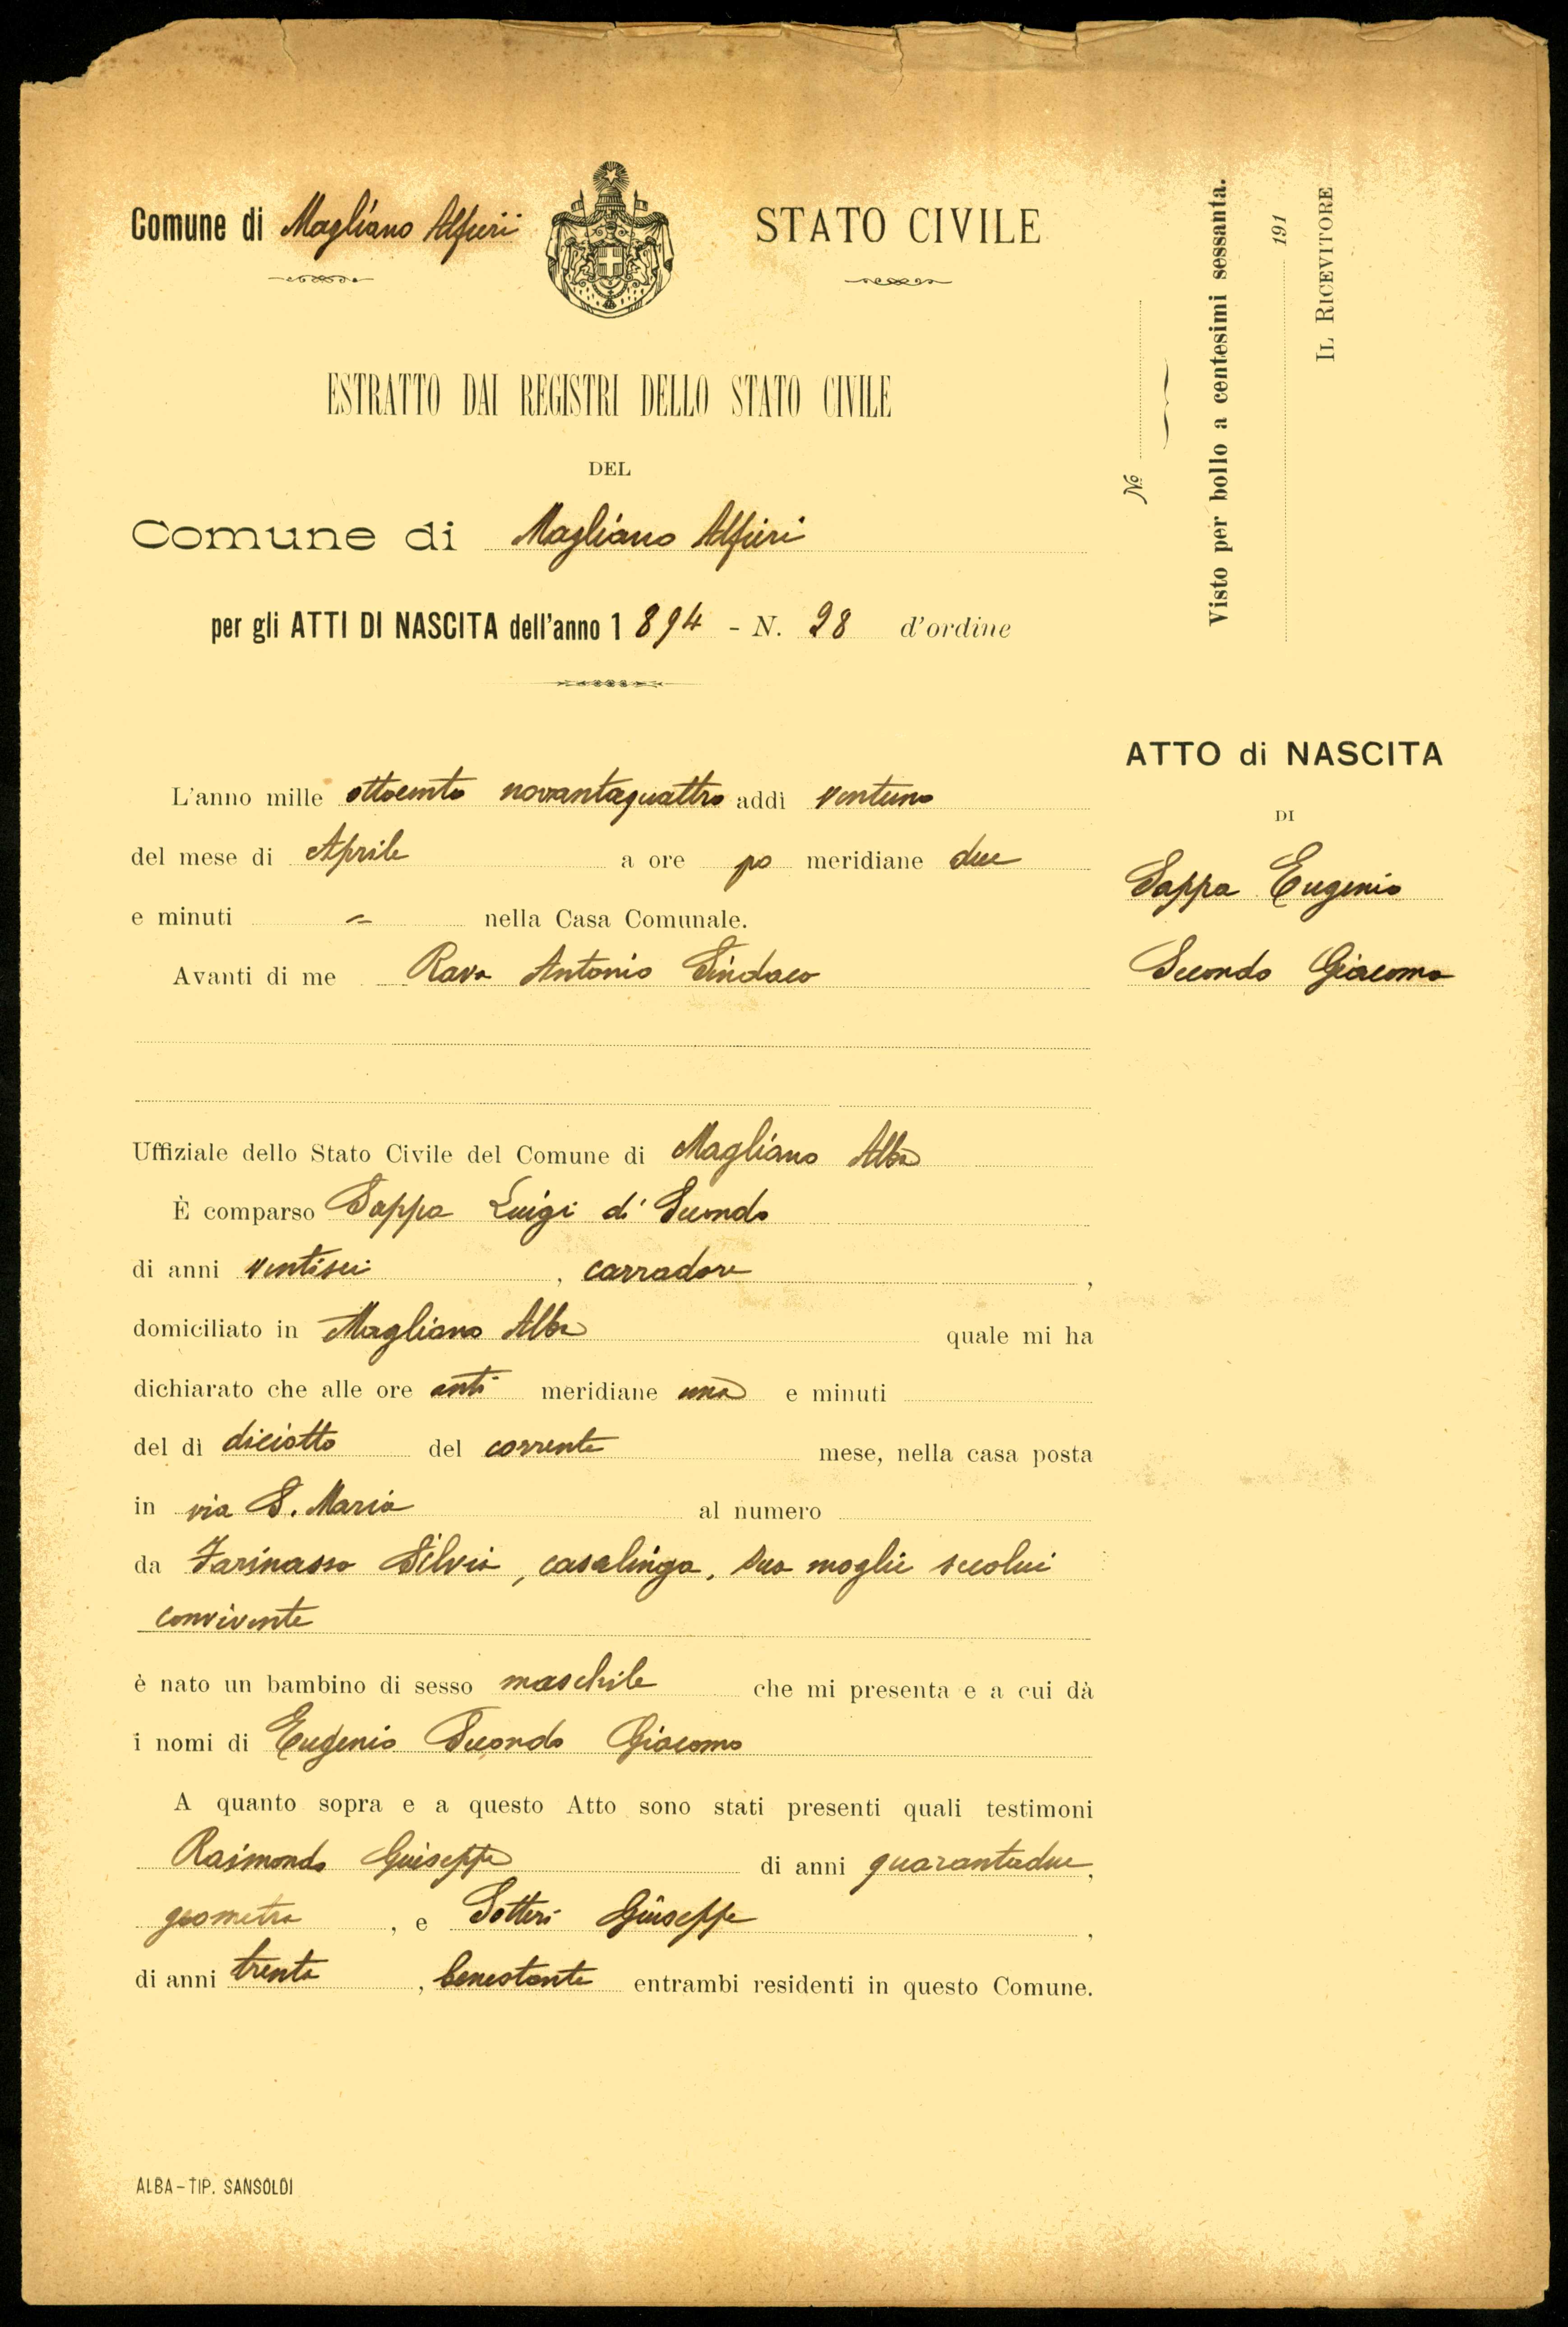 Comune di Magliano Alfieri
STATO CIVILE
ESTRATTO DAI REGISTRI DELLO STATO CIVILE
DEL
Comune di Magliano Alfieri
per gli ATTI DI NASCITA dell'anno 1894 - N. 28 d'ordine
No
Visto per bollo a centesimi sessanta.
191
IL RICEVITORE
ATTO di NASCITA
DI
Sappa Eugenio
Secondo Giacomo
L'anno mille ottocento novantaquattro addì ventuno
del mese di Aprile a ore po meridiane due
e minuti = nella Casa Comunale.
Avanti di me Rava Antonio Sindaco
Uffiziale dello Stato Civile del Comune di Magliano Alba
È comparso Sappa Luigi di Secondo
di anni ventisei, carradore,
domiciliato in Magliano Alba quale mi ha
dichiarato che alle ore anti meridiane una e minuti
del dì diciotto del corrente mese, nella casa posta
in via S. Maria al numero
da Farinasso Silvia, casalinga, sua moglie secolui
convivente
è nato un bambino di sesso maschile che mi presenta e a cui dà
i nomi di Eugenio Secondo Giacomo
A quanto sopra e a questo Atto sono stati presenti quali testimoni
Raimondo Giuseppe di anni quarantadue,
geometra, e Sotteri Giuseppe,
di anni trenta, benestante entrambi residenti in questo Comune.
ALBA-TIP. SANSOLDI